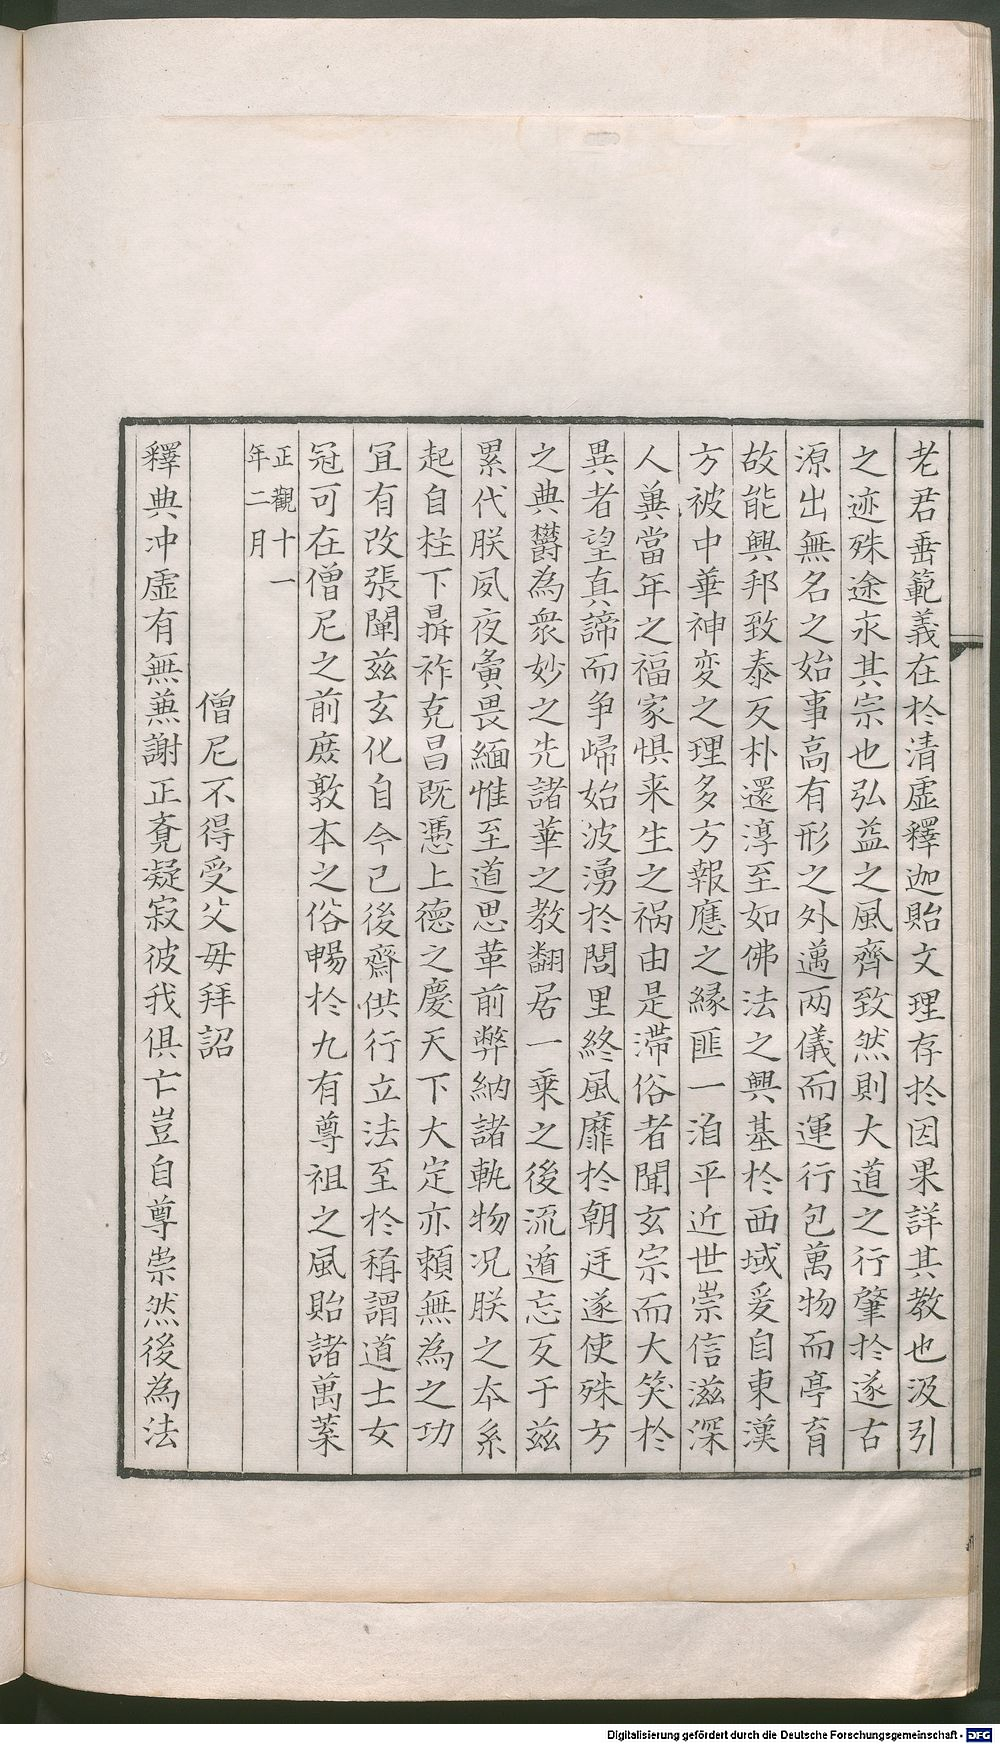 老君垂範義在於清虛釋迦貽文理存於因果詳其教也汲引
之迹殊途永其宗也弘益之風齊致然則大道之行肇於遂古
源出無名之始事高有形之外邁兩儀而運行包萬物而亭育
故能興邦致泰反朴還淳至如佛法之興基於西域爰自東漢
方被中華神変之理多方報應之緣匪一洎平近世崇信滋深
人兾當年之福家惧来生之祸由是滯俗者聞玄宗而大笑於
異者望真諦而争歸始波湧於閭里終風靡於朝廷遂使殊方
之典欝為衆妙之先諸華之教翻居一乗之後流遁忘反于兹
累代朕夙夜夤畏緬惟至道思革前弊納諸軌物况朕之本系
起自柱下鼎祚克昌既憑上德之慶天下大定亦頼無為之功
冝有改張闡兹玄化自今已後齋供行立法至於稱謂道士女
冠可在僧尼之前庶敦本之俗暢於九有尊祖之風貽諸萬葉
正觀十一
年二月
僧尼不得受父母拜詔
釋典冲虛有無兼謝正覔凝寂彼我俱亡豈自尊崇然後為法
Digitalisierung gefördert durch die Deutsche Forschungsgemeinschaft - DFG